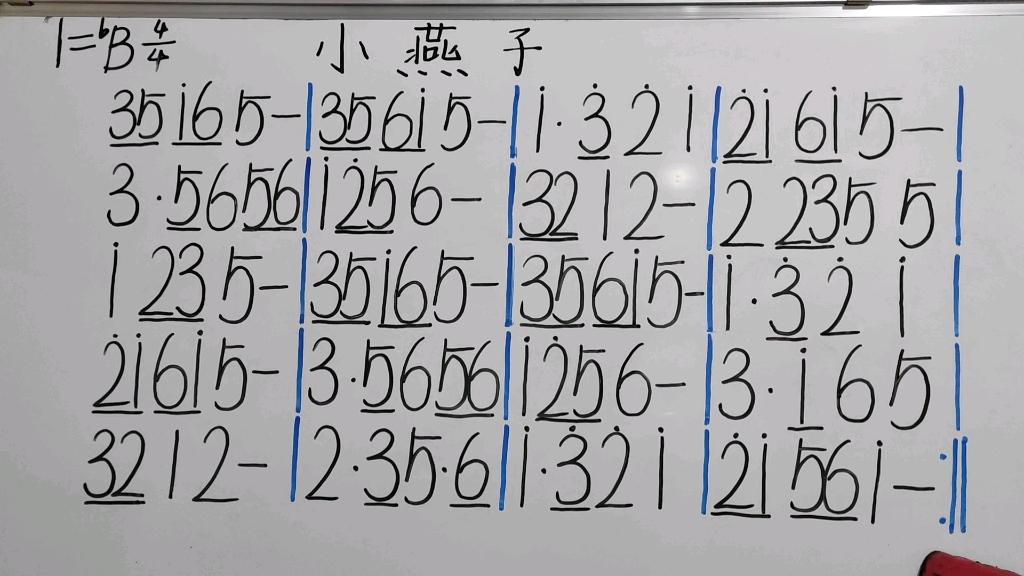 1=♭B 4/4 小燕子
35 i̇65- | 35 61̇ 5- | 1̇·3̇ 2̇ 1̇ | 2̇1̇ 61̇ 5- |
3·5656 | 1̇2̇56- | 32 12- | 2 235 5 |
1̇ 23 5- | 351̇65- | 3561̇5- | 1̇·3̇2̇ 1̇ |
2̇1̇61̇5- | 3·5656 | 1̇2̇56- | 3·1̇65 |
32 12- | 2·35·6 | 1̇·3̇2̇1̇ | 2̇1̇ 561̇- :||